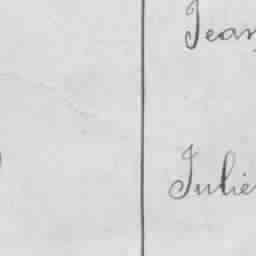 Jean
Julie